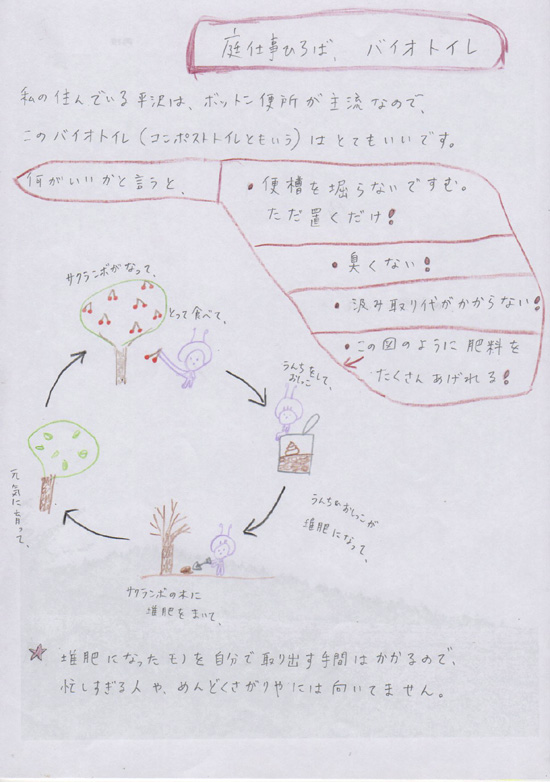 庭仕事ひろば、バイオトイレ
私の住んでいる平沢は、ボットン便所が主流なので、
このバイオトイレ(コンポストトイレともいう)はとてもいいです。
何がいいかと言うと、
・便槽を堀らないですむ。
ただ置くだけ!
・臭くない!
・汲み取り代がかからない!
・この図のように肥料を
たくさんあげれる!
サクランボがなって、
とって食べて、
うんちをして、
おしっこ
うんちやおしっこが
堆肥になって、
サクランボの木に
堆肥をまいて、
元気に育って、
★ 堆肥になったモノを自分で取り出す手間はかかるので、
忙しすぎる人や、めんどくさがりやには向いてません。